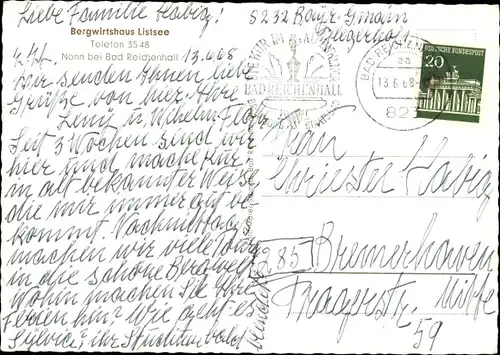 Liebe Familie Habig!
5232 Bayr. Gmain
Bergwirtshaus Listsee
Telefon 3548
Nonn bei Bad Reichenhall
13.6.68
Wir senden Ihnen liebe
Grüße von hier. Ihre
Leny u. Wilhelm
Seit 3 Wochen sind wir
hier und mache Kur
in alt bekannter Weise
die mir immer gut be-
kommt. Nachmittags
machen wir viele Touren
in die schöne Bergwelt
Wohin machen Sie Ihre
Ferien hin? Wie geht es
Sylvia? ihr Studium bald
beendet?
ZUR KUR IM STAATSBAD
BAD REICHENHALL
BAD REICHENHALL
13.6.68
823
DEUTSCHE BUNDESPOST
20
Frau
Habig
285 Bremerhaven
Pragerstr. Mitte
59